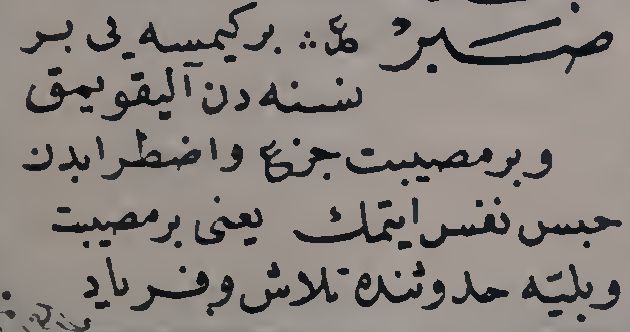 صبر ع∴ بر كيمسه يی بر
نسنه دن آليقويمق
وبر مصيبت جزع واضطرابدن
حبس نفس ايتمك يعنی بر مصيبت
وبليه حدوثنده تلاش وفرياد